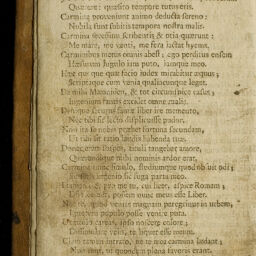 Quærere: quæsito tempore tutus eris.
Carmina proveniunt animo deducta sereno:
Nubila sunt subitis tempora nostra malis.
Carmina secessum scribentis & otia quærunt:
Me mare, me venti, me fera jactat hyems.
Carminibus metus omnis abest: ego perditus ensem
Hæsurum jugulo jam puto, jamque meo.
Hæc quoque quæ facio judex mirabitur æquus:
Scriptaque cum venia qualiacunque leget.
Da mihi Mæonidem, & tot circumspice casus;
Ingenium tantis excidet omne malis.
Denique securus famæ liber ire memento,
Nec tibi sit lecto displicuisse pudor.
Non ita se nobis præbet fortuna secundam,
Ut tibi sit ratio laudis habenda tuæ.
Donec eram sospes, tituli tangebar amore,
Quærendique mihi nominis ardor erat.
Carmina nunc si non studiumque quod obfuit odi;
Sit satis: ingenio sic fuga parta meo.
I tamen, & pro me tu, cui licet, aspice Romam;
possem nunc meus esse Liber.
Nec te, quod venias magnam peregrinus in urbem,
Ignotum populo posse venire puta.
Ut titulo careas, ipso noscere colore;
Dissimulare velis, te liquet esse meum.
Clam tamen intrato, ne te mea carmina lædant;
Non sunt, ut quondam plena favoris erant.